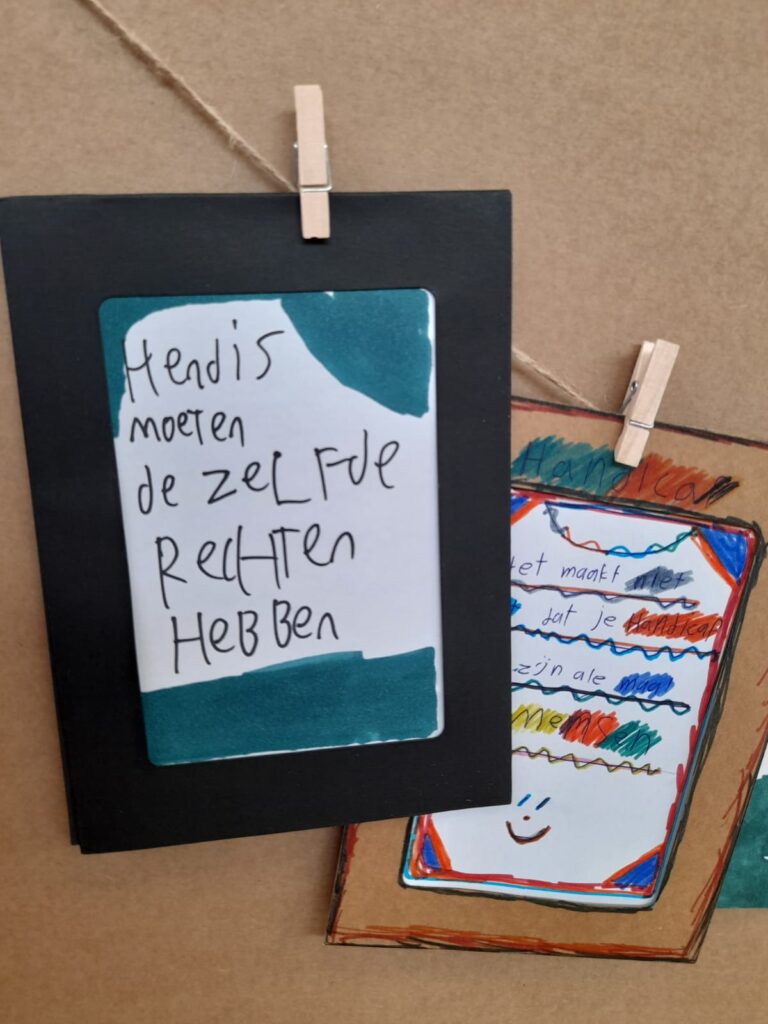 Hendis
moeten
de zelfde
Rechten
Hebben
Handicap
maakt niet
dat je Handicap
zijn ale maal
Mensen